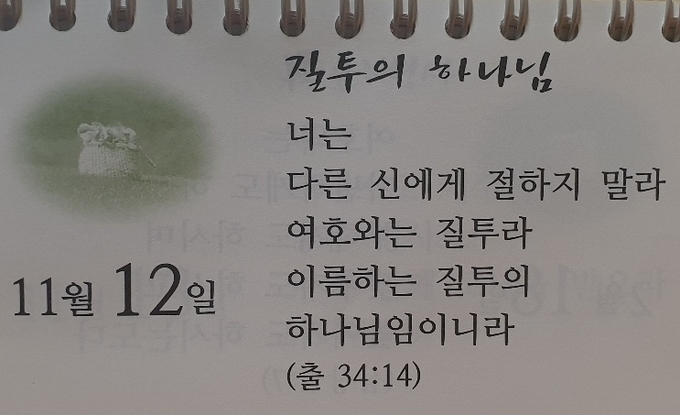 질투의 하나님
너는
다른 신에게 절하지 말라
여호와는 질투라
이름하는 질투의
하나님임이니라
(출 34:14)
11월 12일